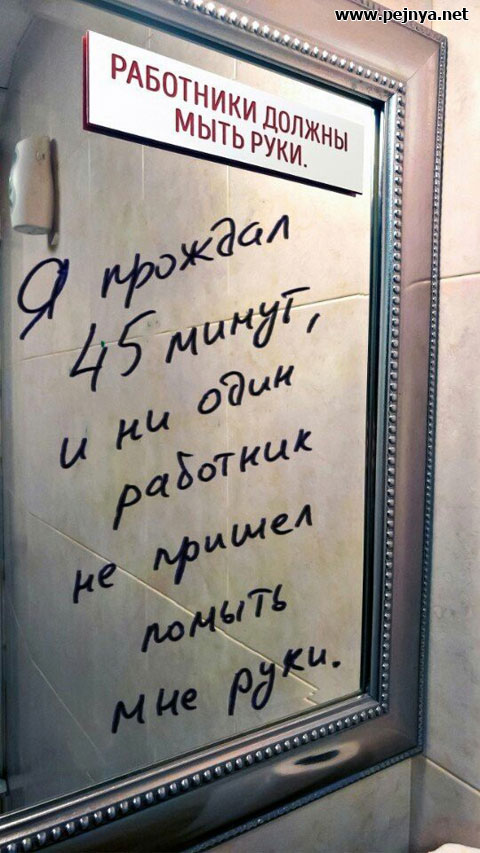 www.pejnya.net
РАБОТНИКИ ДОЛЖНЫ
МЫТЬ РУКИ.
Я прождал
45 минут,
и ни один
работник
не пришел
помыть
мне руки.